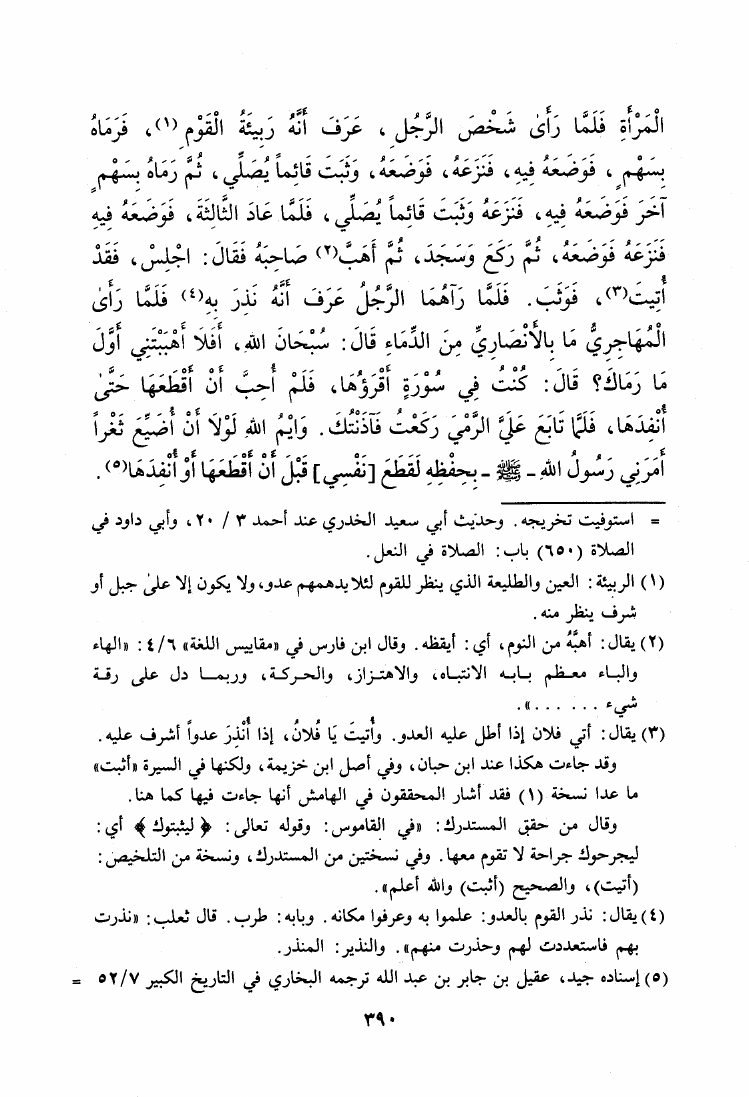 الْمَرْأَةِ فَلَمَّا رَأَىٰ شَخْصَ الرَّجُلِ، عَرَفَ أَنَّهُ رَبِيئَةُ الْقَوْمِ(١)، فَرَمَاهُ
بِسَهْمٍ، فَوَضَعَهُ فِيهِ، فَنَزَعَهُ، فَوَضَعَهُ، وَثَبَتَ قَائِماً يُصَلِّي، ثُمَّ رَمَاهُ بِسَهْمٍ
آخَرَ فَوَضَعَهُ فِيهِ، فَنَزَعَهُ وَثَبَتَ قَائِماً يُصَلِّي، فَلَمَّا عَادَ الثَّالِثَةَ، فَوَضَعَهُ فِيهِ
فَنَزَعَهُ فَوَضَعَهُ، ثُمَّ رَكَعَ وَسَجَدَ، ثُمَّ أَهَبَّ(٢) صَاحِبَهُ فَقَالَ: اجْلِسْ، فَقَدْ
أُتِيتَ(٣)، فَوَثَبَ. فَلَمَّا رَآهُمَا الرَّجُلُ عَرَفَ أَنَّهُ نَذِرَ بِهِ(٤) فَلَمَّا رَأَىٰ
الْمُهَاجِرِيُّ مَا بِالأَنْصَارِيِّ مِنَ الدِّمَاءِ قَالَ: سُبْحَانَ اللهِ، أَفَلَا أَهْبَبْتَنِي أَوَّلَ
مَا رَمَاكَ؟ قَالَ: كُنْتُ فِي سُورَةٍ أَقْرَؤُهَا، فَلَمْ أُحِبَّ أَنْ أَقْطَعَهَا حَتَّىٰ
أُنْفِدَهَا، فَلَمَّا تَابَعَ عَلَيَّ الرَّمْيَ رَكَعْتُ فَآذَنْتُكَ. وَايْمُ اللهِ لَوْلَا أَنْ أُضَيِّعَ ثَغْراً
أَمَرَنِي رَسُولُ اللهِ - ﷺ - بِحِفْظِهِ لَقَطَعَ [نَفْسِي] قَبْلَ أَنْ أَقْطَعَهَا أَوْ أُنْفِدَهَا(٥).
= استوفيت تخريجه. وحديث أبي سعيد الخدري عند أحمد ٣ / ٢٠، وأبي داود في
الصلاة (٦٥٠) باب: الصلاة في النعل.
(١) الربيئة: العين والطليعة الذي ينظر للقوم لئلا يدهمهم عدو، ولا يكون إلا على جبل أو
شرف ينظر منه.
(٢) يقال: أهبَّهُ من النوم، أي: أيقظه. وقال ابن فارس في «مقاييس اللغة» ٤/٦: «الهاء
والباء معظم بابه الانتباه، والاهتزاز، والحركة، وربما دل على رقة
شيء . . . . . .».
(٣) يقال: أتي فلان إذا أطل عليه العدو. وأُتيتَ يَا فُلانُ، إذا أُنْذِرَ عدواً أشرف عليه.
وقد جاءت هكذا عند ابن حبان، وفي أصل ابن خزيمة، ولكنها في السيرة «أثبت»
ما عدا نسخة (١) فقد أشار المحققون في الهامش أنها جاءت فيها كما هنا.
وقال من حقق المستدرك: «في القاموس: وقوله تعالى: ﴿ليثبتوك﴾ أي:
ليجرحوك جراحة لا تقوم معها. وفي نسختين من المستدرك، ونسخة من التلخيص:
(أتيت)، والصحيح (أثبت) والله أعلم».
(٤) يقال: نذر القوم بالعدو: علموا به وعرفوا مكانه. وبابه: طرب. قال ثعلب: «نذرت
بهم فاستعددت لهم وحذرت منهم». والنذير: المنذر.
(٥) إسناده جيد، عقيل بن جابر بن عبد الله ترجمه البخاري في التاريخ الكبير ٥٢/٧ =
٣٩٠